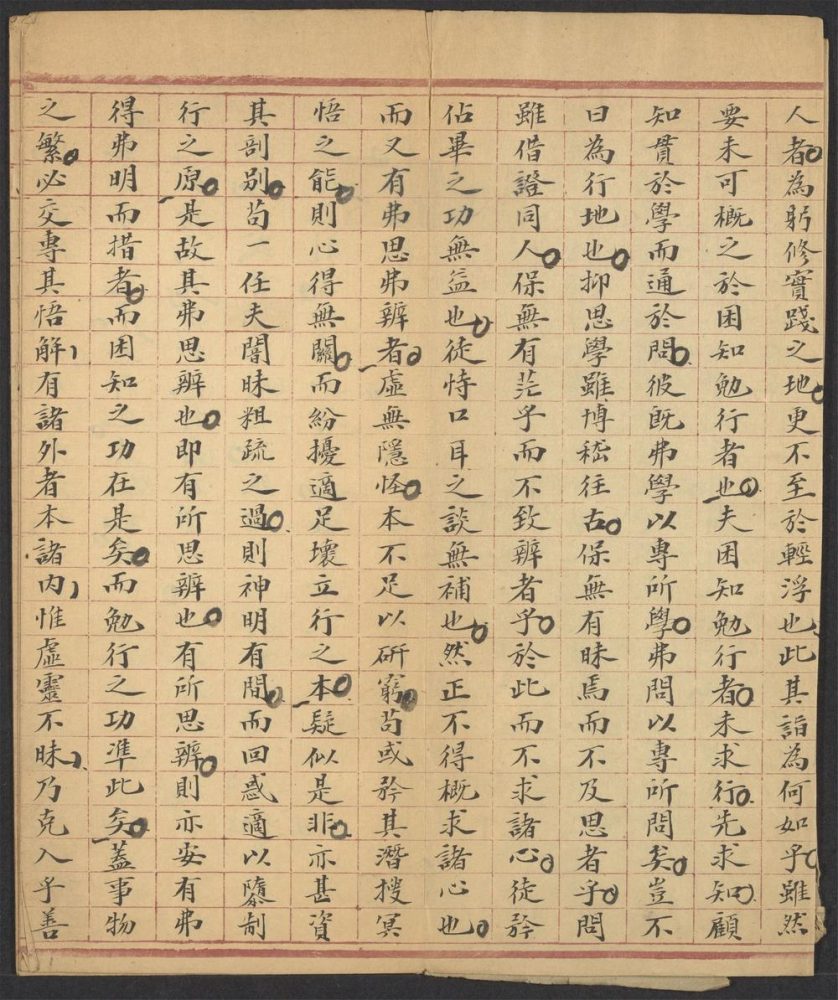 人者為躬修實踐之地更不至於輕浮也此其詣為何如乎雖然
要未可概之於困知勉行者也夫困知勉行者未求行先求知顧
知貫於學而通於問彼既弗學以專所學弗問以專所問矣豈不
曰為行地也抑思學雖博嵇往古保無有昧焉而不及思者乎問
雖借證同人保無有茫乎而不致辨者乎於此而不求諸心徒矜
佔畢之功無益也徒恃口耳之談無補也然正不得概求諸心也
而又有弗思弗辨者虛無隱怪本不足以研窮苟或矜其潛搜冥
悟之能則心得無關而紛擾適足壞立行之本疑似是非亦甚資
其剖別苟一任夫闇昧粗疏之過則神明有間而回惑適以隳制
行之原是故其弗思辨也即有所思辨也有所思辨則亦安有弗
得弗明而措者而困知之功在是矣而勉行之功準此矣蓋事物
之繁必交專其悟解有諸外者本諸內惟虛靈不昧乃克入乎善